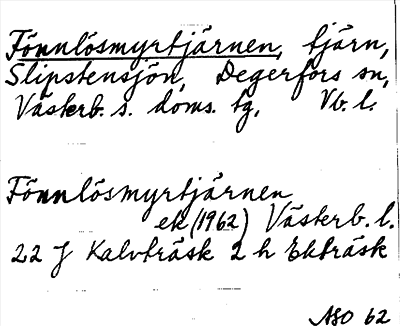 Fönnlösmyrtjärnen, tjärn,
Slipstensjön, Degerfors sn,
Västerb. s. doms. tg, Vb. l.
Fönnlösmyrtjärnen
ek (1962) Västerb. l.
22 J Kalvträsk 2 h Ekträsk
NSO 62